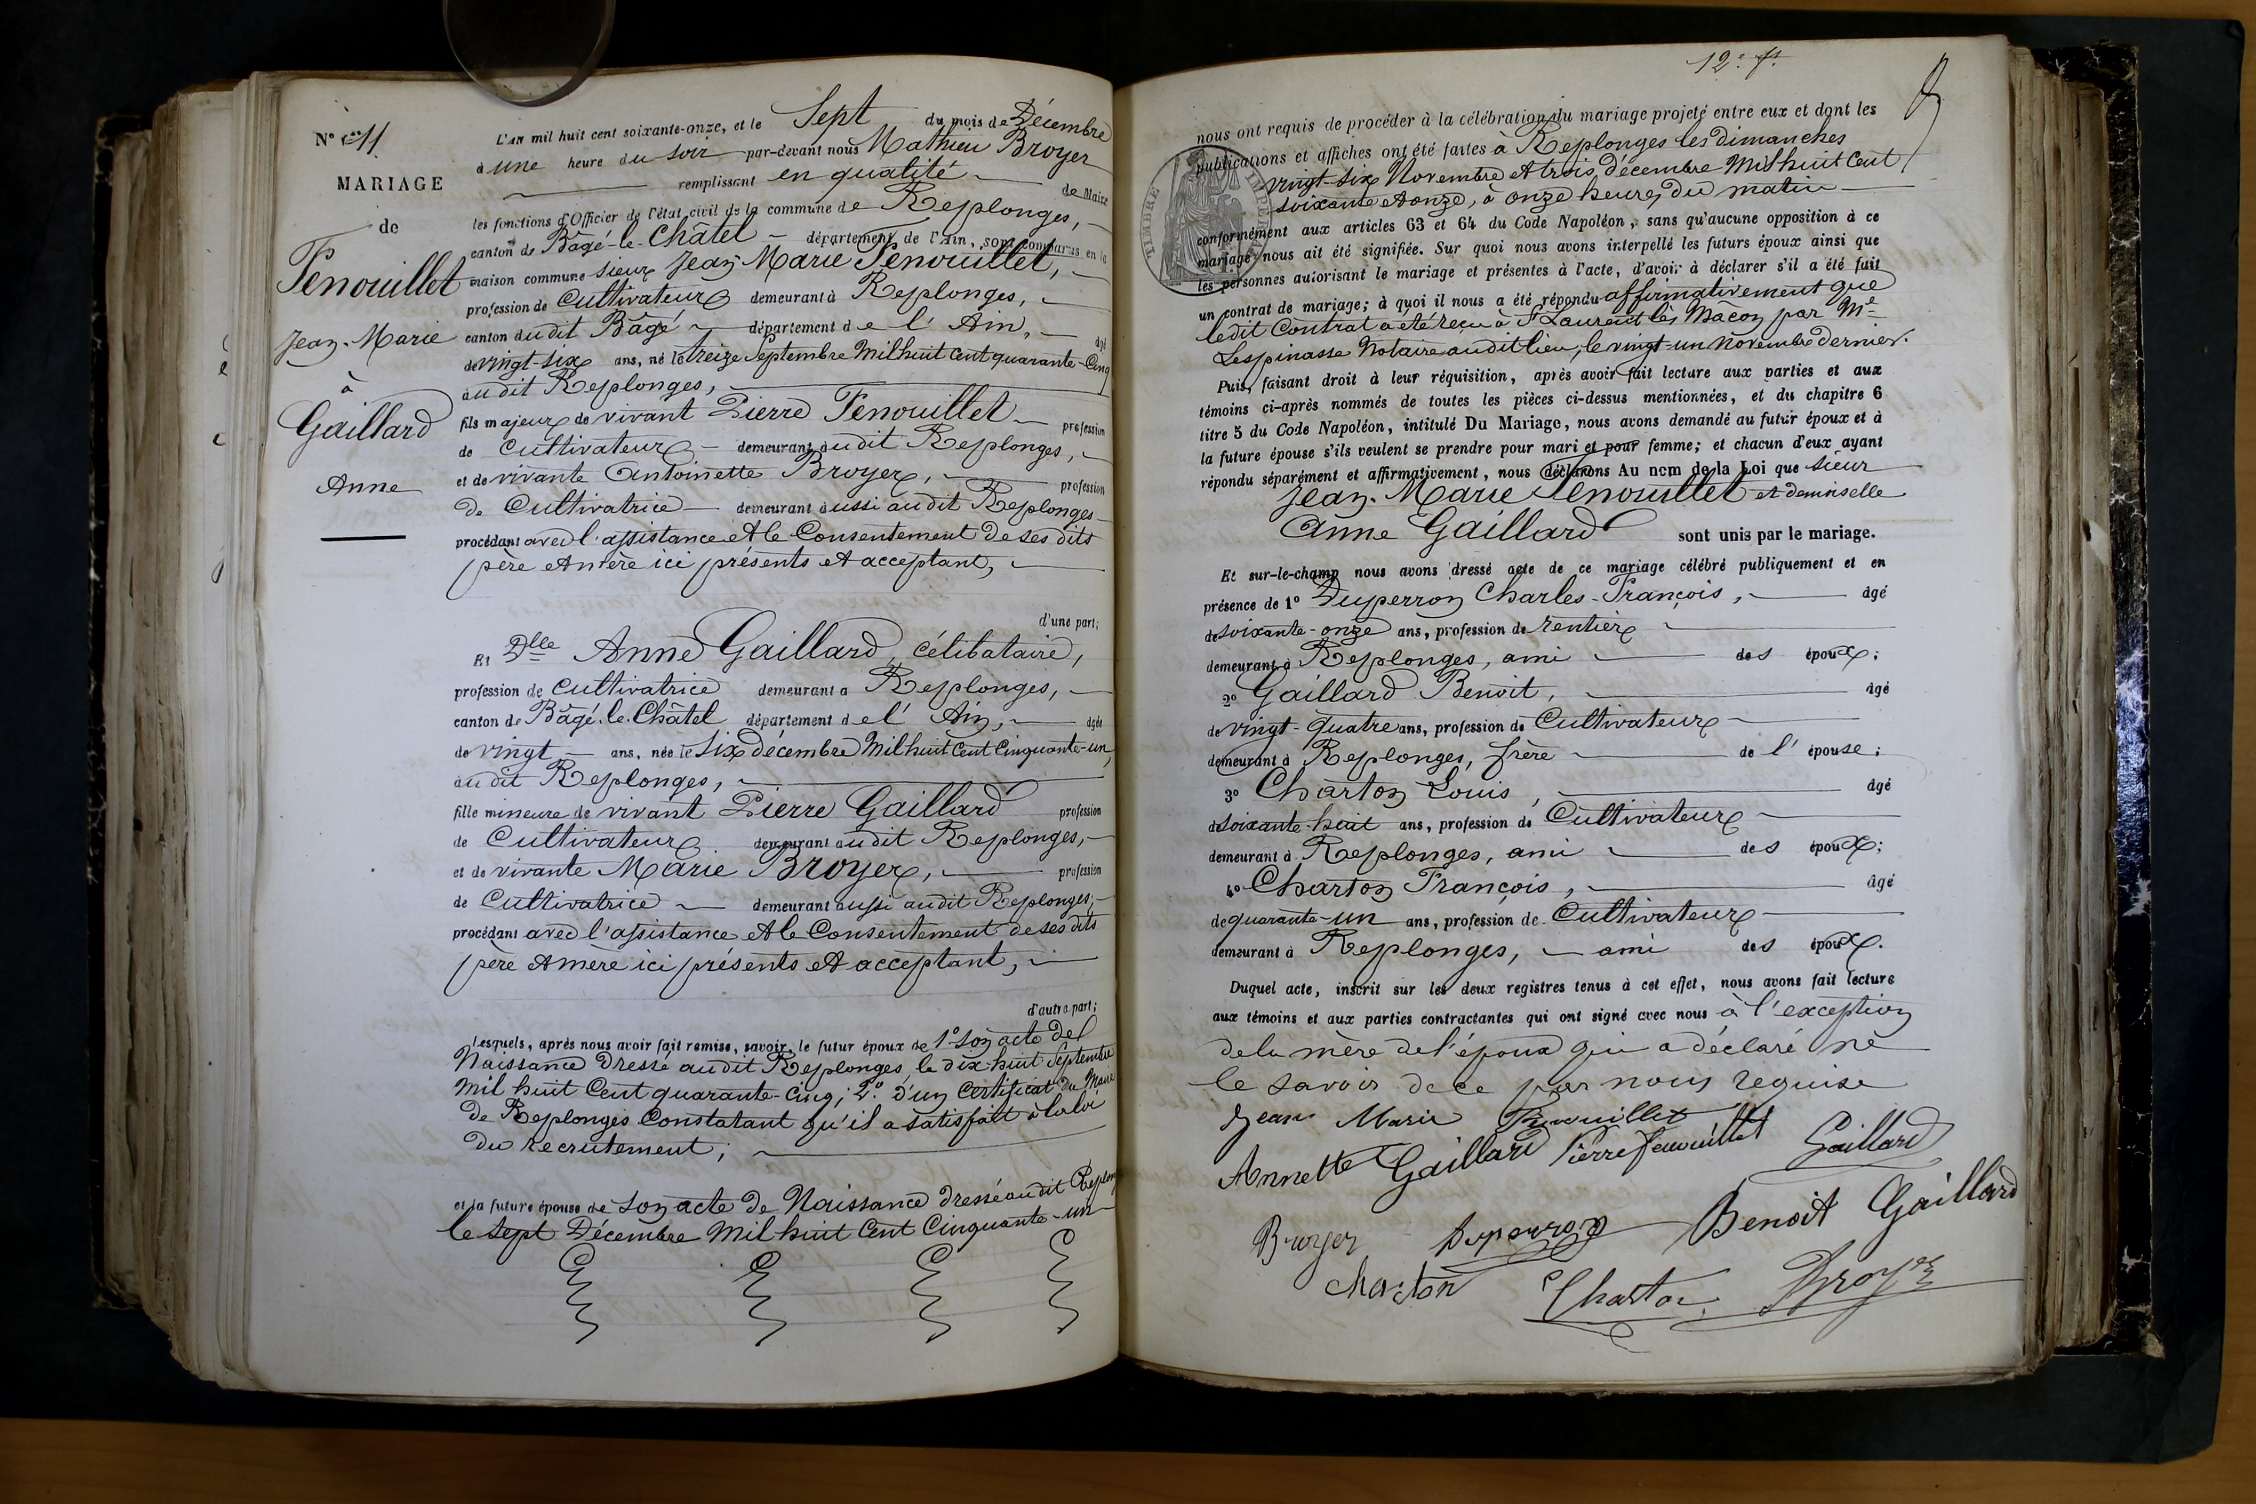 N° 11
MARIAGE
de
Fenouillet
Jean-Marie
à
Gaillard
Anne
L'an mil huit cent soixante-onze, et le Sept du mois de Décembre
à une heure du soir par-devant nous Mathieu Broyer
remplissant en qualité de Maire
les fonctions d'Officier de l'état civil de la commune de Replonges,
canton de Bâgé-le-Châtel département de l'Ain, sont comparus en la
maison commune sieur Jean Marie Fenouillet,
profession de Cultivateur demeurant à Replonges,
canton dudit Bâgé département de l'Ain, âgé
de vingt-six ans, né le treize Septembre Mil huit Cent quarante-Cinq
audit Replonges,
fils majeur de vivant Pierre Fenouillet profession
de Cultivateur demeurant audit Replonges,
et de vivante Antoinette Broyer, profession
de Cultivatrice demeurant aussi audit Replonges
procédant avec l'assistance et le Consentement de ses dits
père et mère ici présents et acceptant,
d'une part;
Et Dlle Anne Gaillard, célibataire,
profession de cultivatrice demeurant a Replonges,
canton de Bâgé-le-Châtel département de l'Ain, âgée
de vingt ans, née le Six décembre Mil huit Cent Cinquante-un,
audit Replonges,
fille mineure de vivant Pierre Gaillard profession
de Cultivateur demeurant audit Replonges,
et de vivante Marie Broyer, profession
de Cultivatrice demeurant aussi audit Replonges,
procédant avec l'assistance et le Consentement de ses dits
père et mère ici présents et acceptant,
d'autre part;
Lesquels, après nous avoir fait remise, savoir, le futur époux de 1° son acte de
Naissance dressé audit Replonges, le dix-huit Septembre
Mil huit Cent quarante-Cinq; 2° d'un Certificat du Maire
de Replonges Constatant qu'il a satisfait à la loi
du recrutement;
et la future épouse de son acte de Naissance dressé audit Replonges
le Sept Décembre Mil huit Cent Cinquante-un
12e ft
nous ont requis de procéder à la célébration du mariage projeté entre eux et dont les
publications et affiches ont été faites à Replonges les dimanches
vingt-six Novembre et trois décembre Mil huit Cent
soixante et onze, à onze heures du matin
TIMBRE IMPÉRIAL
conformément aux articles 63 et 64 du Code Napoléon, sans qu'aucune opposition à ce
mariage nous ait été signifiée. Sur quoi nous avons interpellé les futurs époux ainsi que
les personnes autorisant le mariage et présentes à l'acte, d'avoir à déclarer s'il a été fait
un contrat de mariage; à quoi il nous a été répondu affirmativement que
ledit Contrat a été reçu à St Laurent lès Mâcon par Me
Lespinasse Notaire audit lieu, le vingt-un Novembre dernier.
Puis, faisant droit à leur réquisition, après avoir fait lecture aux parties et aux
témoins ci-après nommés de toutes les pièces ci-dessus mentionnées, et du chapitre 6
titre 5 du Code Napoléon, intitulé Du Mariage, nous avons demandé au futur époux et à
la future épouse s'ils veulent se prendre pour mari et pour femme; et chacun d'eux ayant
répondu séparément et affirmativement, nous déclarons Au nom de la Loi que sieur
Jean-Marie Fenouillet et demoiselle
Anne Gaillard sont unis par le mariage.
Et sur-le-champ nous avons dressé acte de ce mariage célébré publiquement et en
présence de 1° Duperron Charles-François, âgé
de soixante-onze ans, profession de rentier
demeurant à Replonges, ami des époux;
2° Gaillard Benoit, âgé
de vingt-quatre ans, profession de Cultivateur
demeurant à Replonges, frère de l'épouse;
3° Charton Louis, âgé
de soixante-huit ans, profession de Cultivateur
demeurant à Replonges, ami des époux;
4° Charton François, âgé
de quarante-un ans, profession de Cultivateur
demeurant à Replonges, ami des époux.
Duquel acte, inscrit sur les deux registres tenus à cet effet, nous avons fait lecture
aux témoins et aux parties contractantes qui ont signé avec nous à l'exception
de la mère de l'époux qui a déclaré ne
le savoir de ce par nous requise
Jean Marie Fenouillet
Annette Gaillard Pierre Fenouillet Gaillard
Broyer Duperron Benoit Gaillard
Charton Charton Broyer